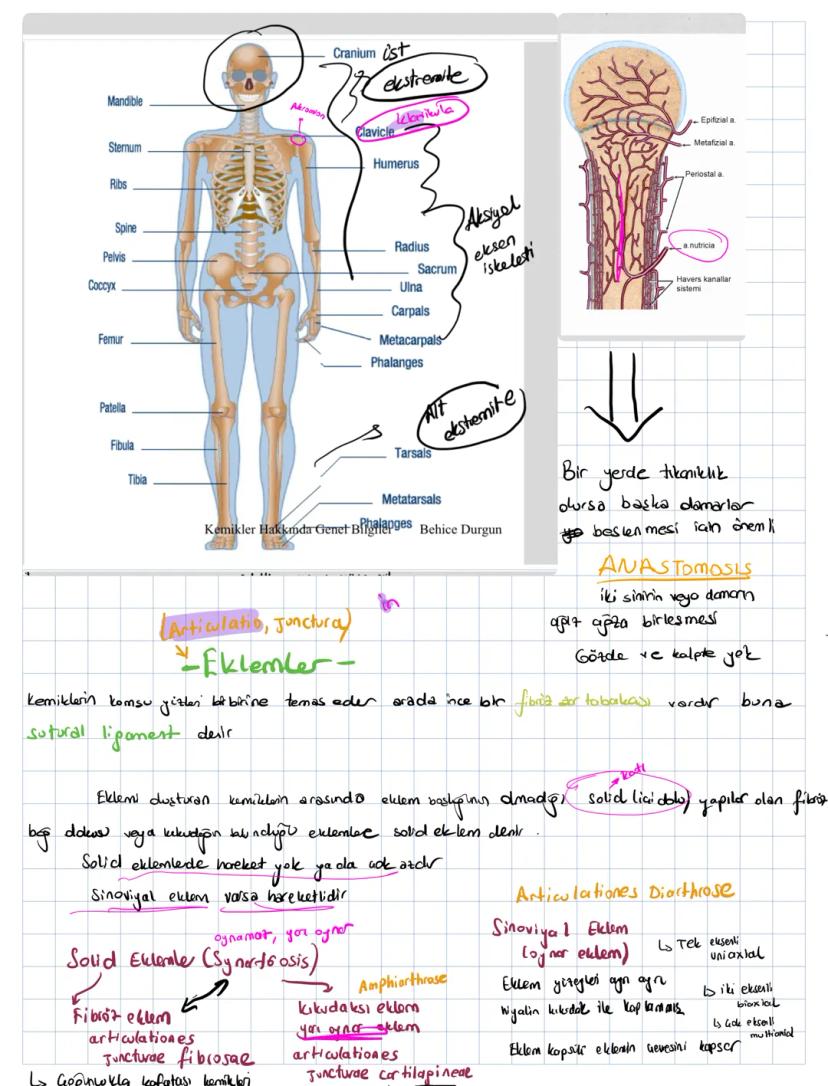 Cranium
ist
ekstremite
Mandible
Akromion
Clavicle
klavikula
Sternum
Humerus
Ribs
Aksiyal
eksen
iskeleti
Spine
Radius
Pelvis
Sacrum
Coccyx
Ulna
Carpals
Femur
Metacarpals
Phalanges
Patella
Alt
ekstremite
Fibula
Tarsals
Tibia
Metatarsals
Phalanges
Kemikler Hakkında Genel Bilgiler Behice Durgun
Epifizial a.
Metafizial a.
Periostal a.
a.nutricia
Havers kanallar
sistemi
Bir yerde tıkanıklık
olursa başka damarlar
beslenmesi için önemli
ANASTOMOSIS
iki sinirin veya damarın
ağız ağıza birleşmesi
Gözde ve kalpte yok
(Articulatio, Junctura)
-Eklemler-
Kemiklerin komşu yüzleri birbirine temas eder arada ince bir fibröz tabakası vardır buna
sutural ligament denir
katı
Eklemi oluşturan kemiklerin arasında eklem boşluğunun olmadığı solid (içi dolu) yapılar olan fibröz
bağ dokusu veya kıkırdağın bulunduğu eklemlere solid eklem denir.
Solid eklemlerde hareket yok ya da çok azdır
Sinoviyal eklem varsa hareketlidir
oynamaz, yarı oynar
Solid Eklemler (Synartrosis)
Fibröz eklem
articulationes
juncturae fibrosae
Çoğunlukla kafatası kemikleri
Amphiarthrose
kıkırdaksı eklem
yarı oynar eklem
articulationes
juncturae cartilagineae
Articulationes Diarthrose
Sinoviyal Eklem
(oynar eklem)
Tek eksenli
uniaxial
Eklem yüzeyleri ayrı ayrı
Hiyalin kıkırdak ile kaplanmış
iki eksenli
biaxial
çok eksenli
multiaxial
Eklem kapsülü eklemin çevresini kapsar